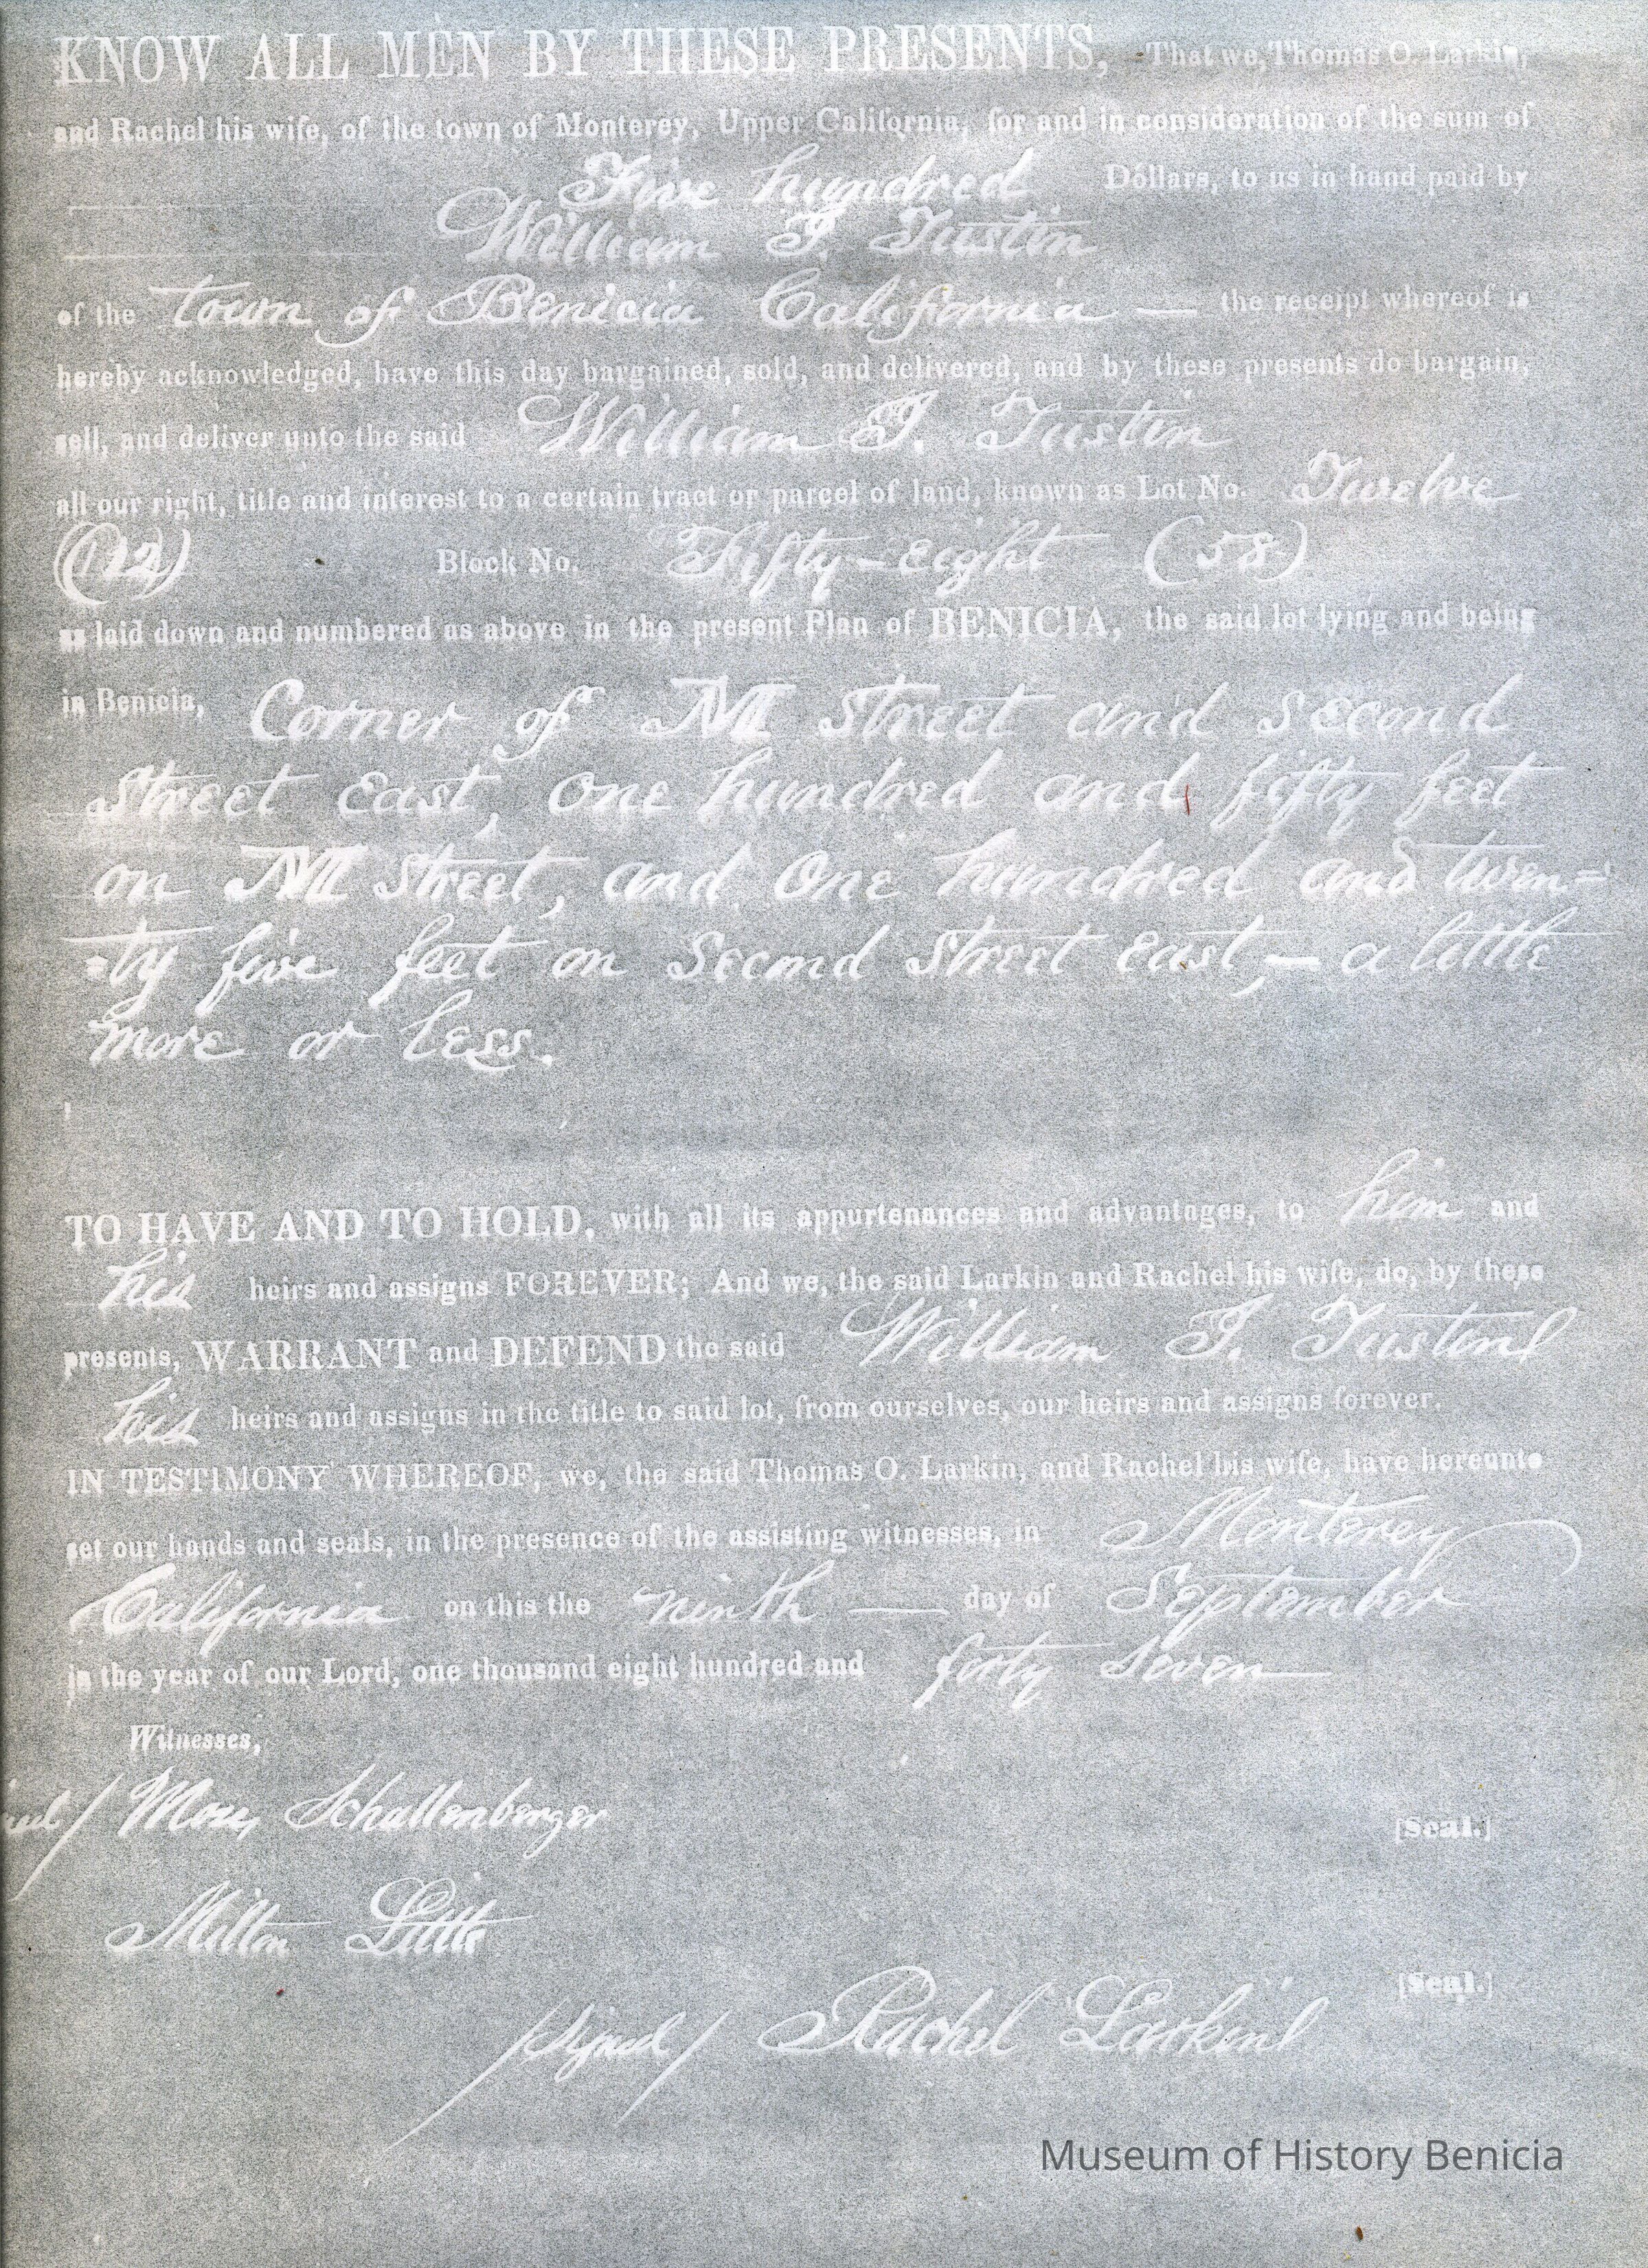 KNOW ALL MEN BY THESE PRESENTS, That we, Thomas O. Larkin,
and Rachel his wife, of the town of Monterey, Upper California, for and in consideration of the sum of
Five hundred Dollars, to us in hand paid by
William I. Tustin
of the town of Benicia California — the receipt whereof is
hereby acknowledged, have this day bargained, sold, and delivered, and by these presents do bargain,
sell, and deliver unto the said William I. Tustin
all our right, title and interest to a certain tract or parcel of land, known as Lot No. Twelve
(12) Block No. Fifty-eight (58)
as laid down and numbered as above in the present Plan of BENICIA, the said lot lying and being
in Benicia, Corner of M street and second
street east, one hundred and fifty feet
on M street, and one hundred and twen=
=ty five feet on second street east, — a little
more or less.
TO HAVE AND TO HOLD, with all its appurtenances and advantages, to him and
his heirs and assigns FOREVER; And we, the said Larkin and Rachel his wife, do, by these
presents, WARRANT and DEFEND the said William I. Tustin
his heirs and assigns in the title to said lot, from ourselves, our heirs and assigns forever.
IN TESTIMONY WHEREOF, we, the said Thomas O. Larkin, and Rachel his wife, have hereunto
set our hands and seals, in the presence of the assisting witnesses, in Monterey
California on this the ninth — day of September
in the year of our Lord, one thousand eight hundred and forty seven
Witnesses,
/ Schallenberger
[Seal.]
Milton Little
[Seal.]
/Signed/ Rachel Larkin
Museum of History Benicia